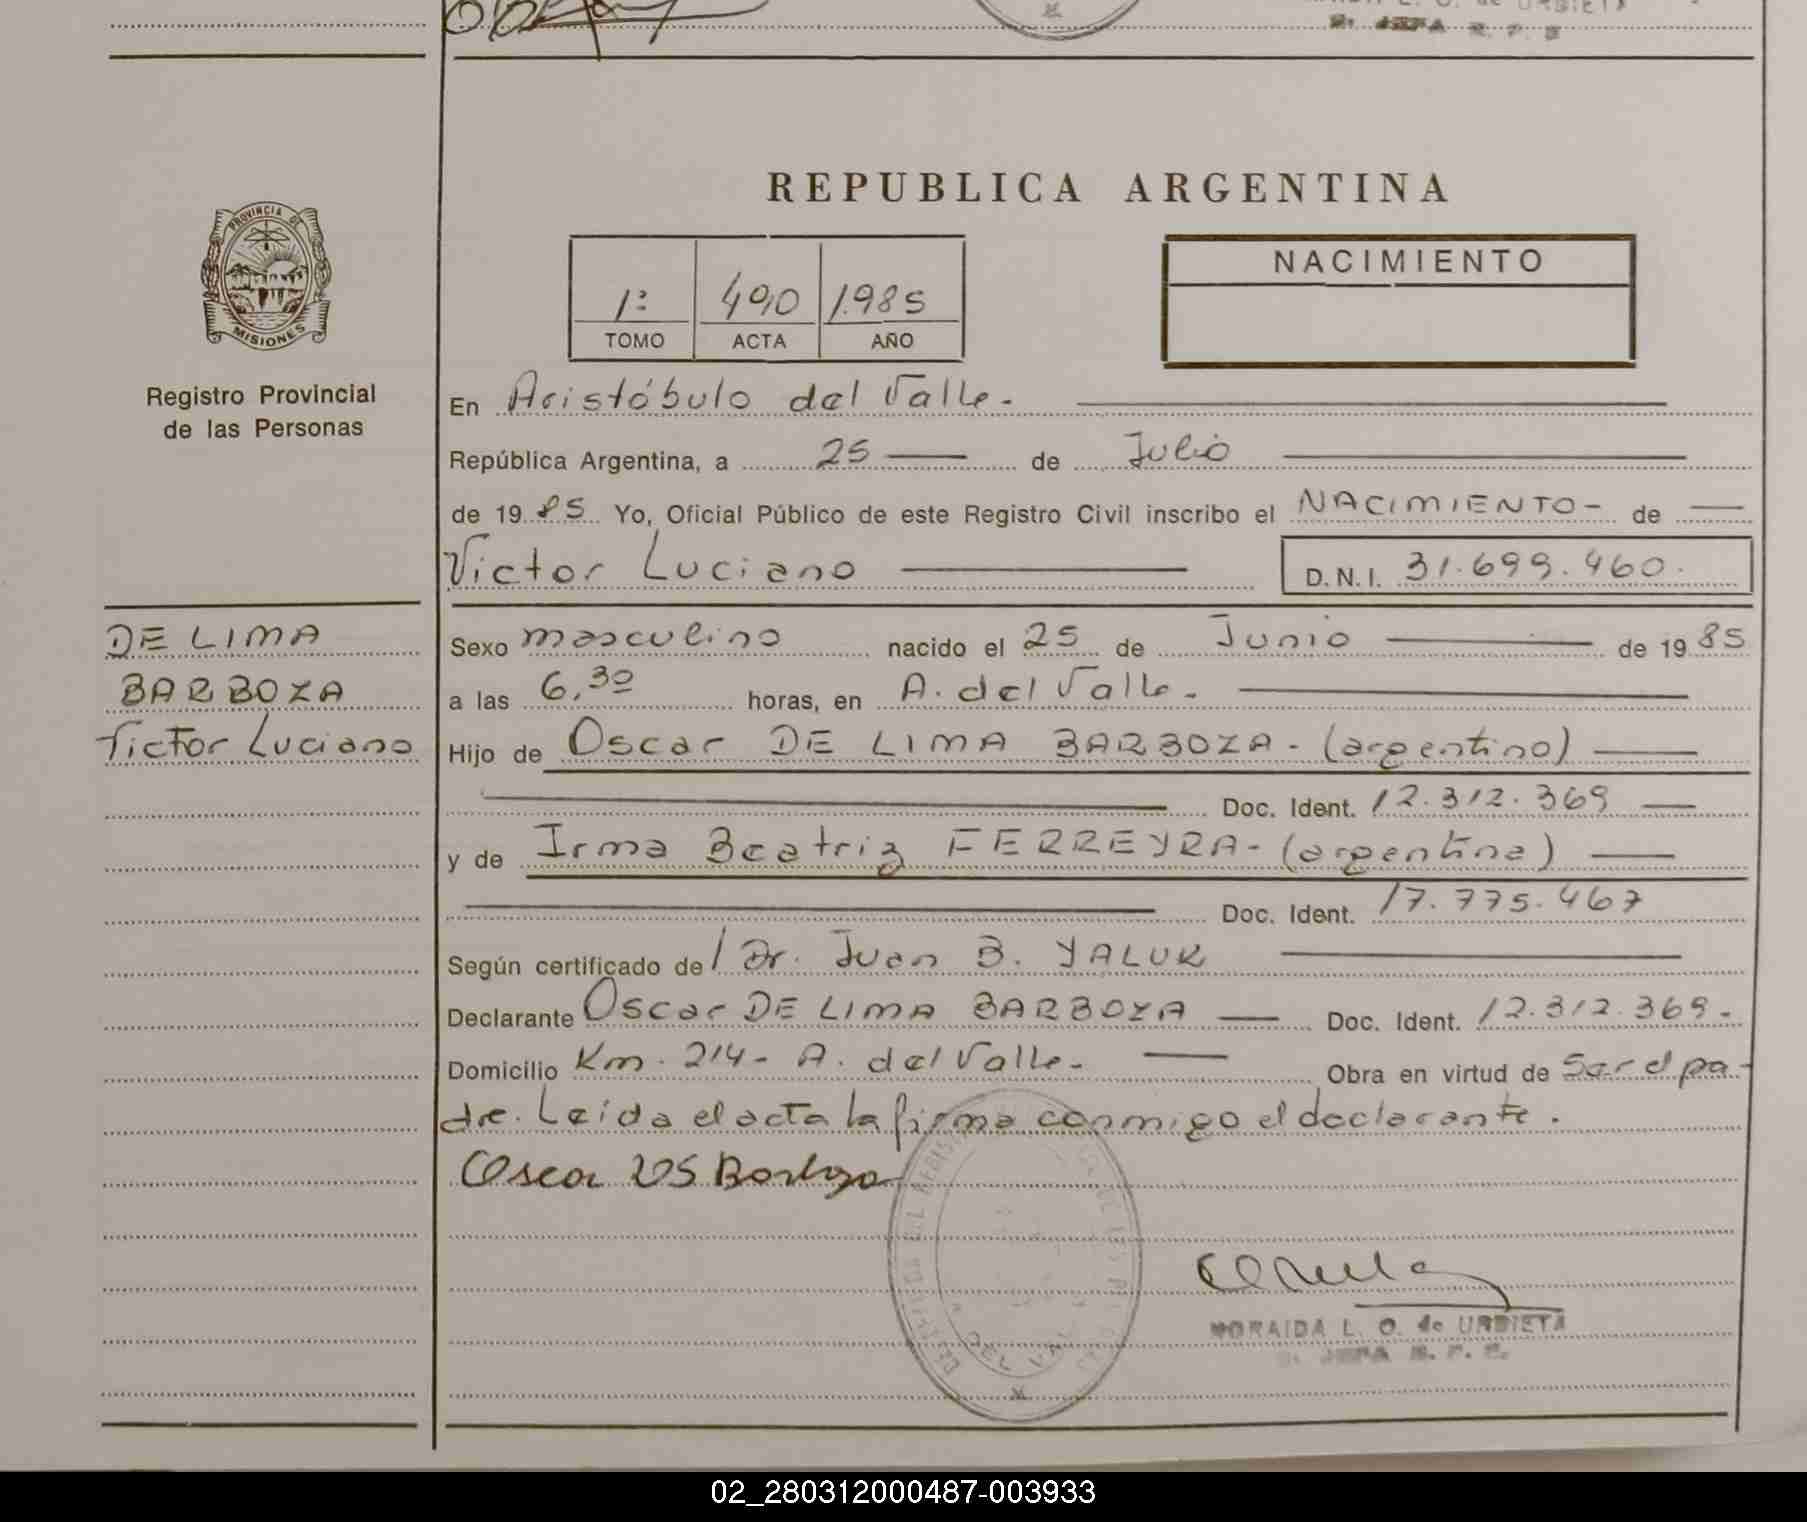 REPUBLICA ARGENTINA
PROVINCIA DE
MISIONES
Registro Provincial
de las Personas
1º 490 1.985
TOMO ACTA AÑO
NACIMIENTO
En Aristóbulo del Valle.-
República Argentina, a 25 de Julio
de 1985 Yo, Oficial Público de este Registro Civil inscribo el NACIMIENTO- de
Victor Luciano D.N.I. 31.699.460.
DE LIMA
BARBOZA
Victor Luciano
Sexo masculino nacido el 25 de Junio de 1985
a las 6,30 horas, en A. del Valle.-
Hijo de Oscar DE LIMA BARBOZA- (argentino)
Doc. Ident. 12.312.369
y de Irma Beatriz FERREYRA- (argentina)
Doc. Ident. 17.775.467
Según certificado de/ Dr. Juan B. YALUK
Declarante Oscar DE LIMA BARBOZA Doc. Ident. 12.312.369.-
Domicilio Km. 214- A. del Valle.- Obra en virtud de Ser el pa-
dre. Leída el acta la firma conmigo el declarante.
DEL VALLE
MORAIDA L. O. de URBIETA
JEFA R. P. P.
02_280312000487-003933